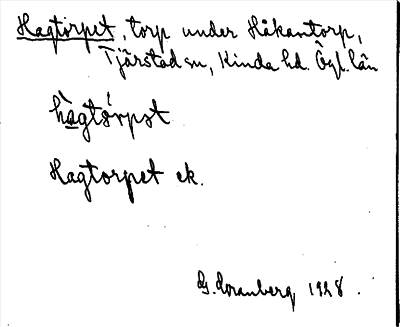 Hagtorpet, torp under Håkantorp,
Tjärstad sn, Kinda hd. Ögl. län
hàgtórpət
Hagtorpet ek.
G. Cranberg 1928.